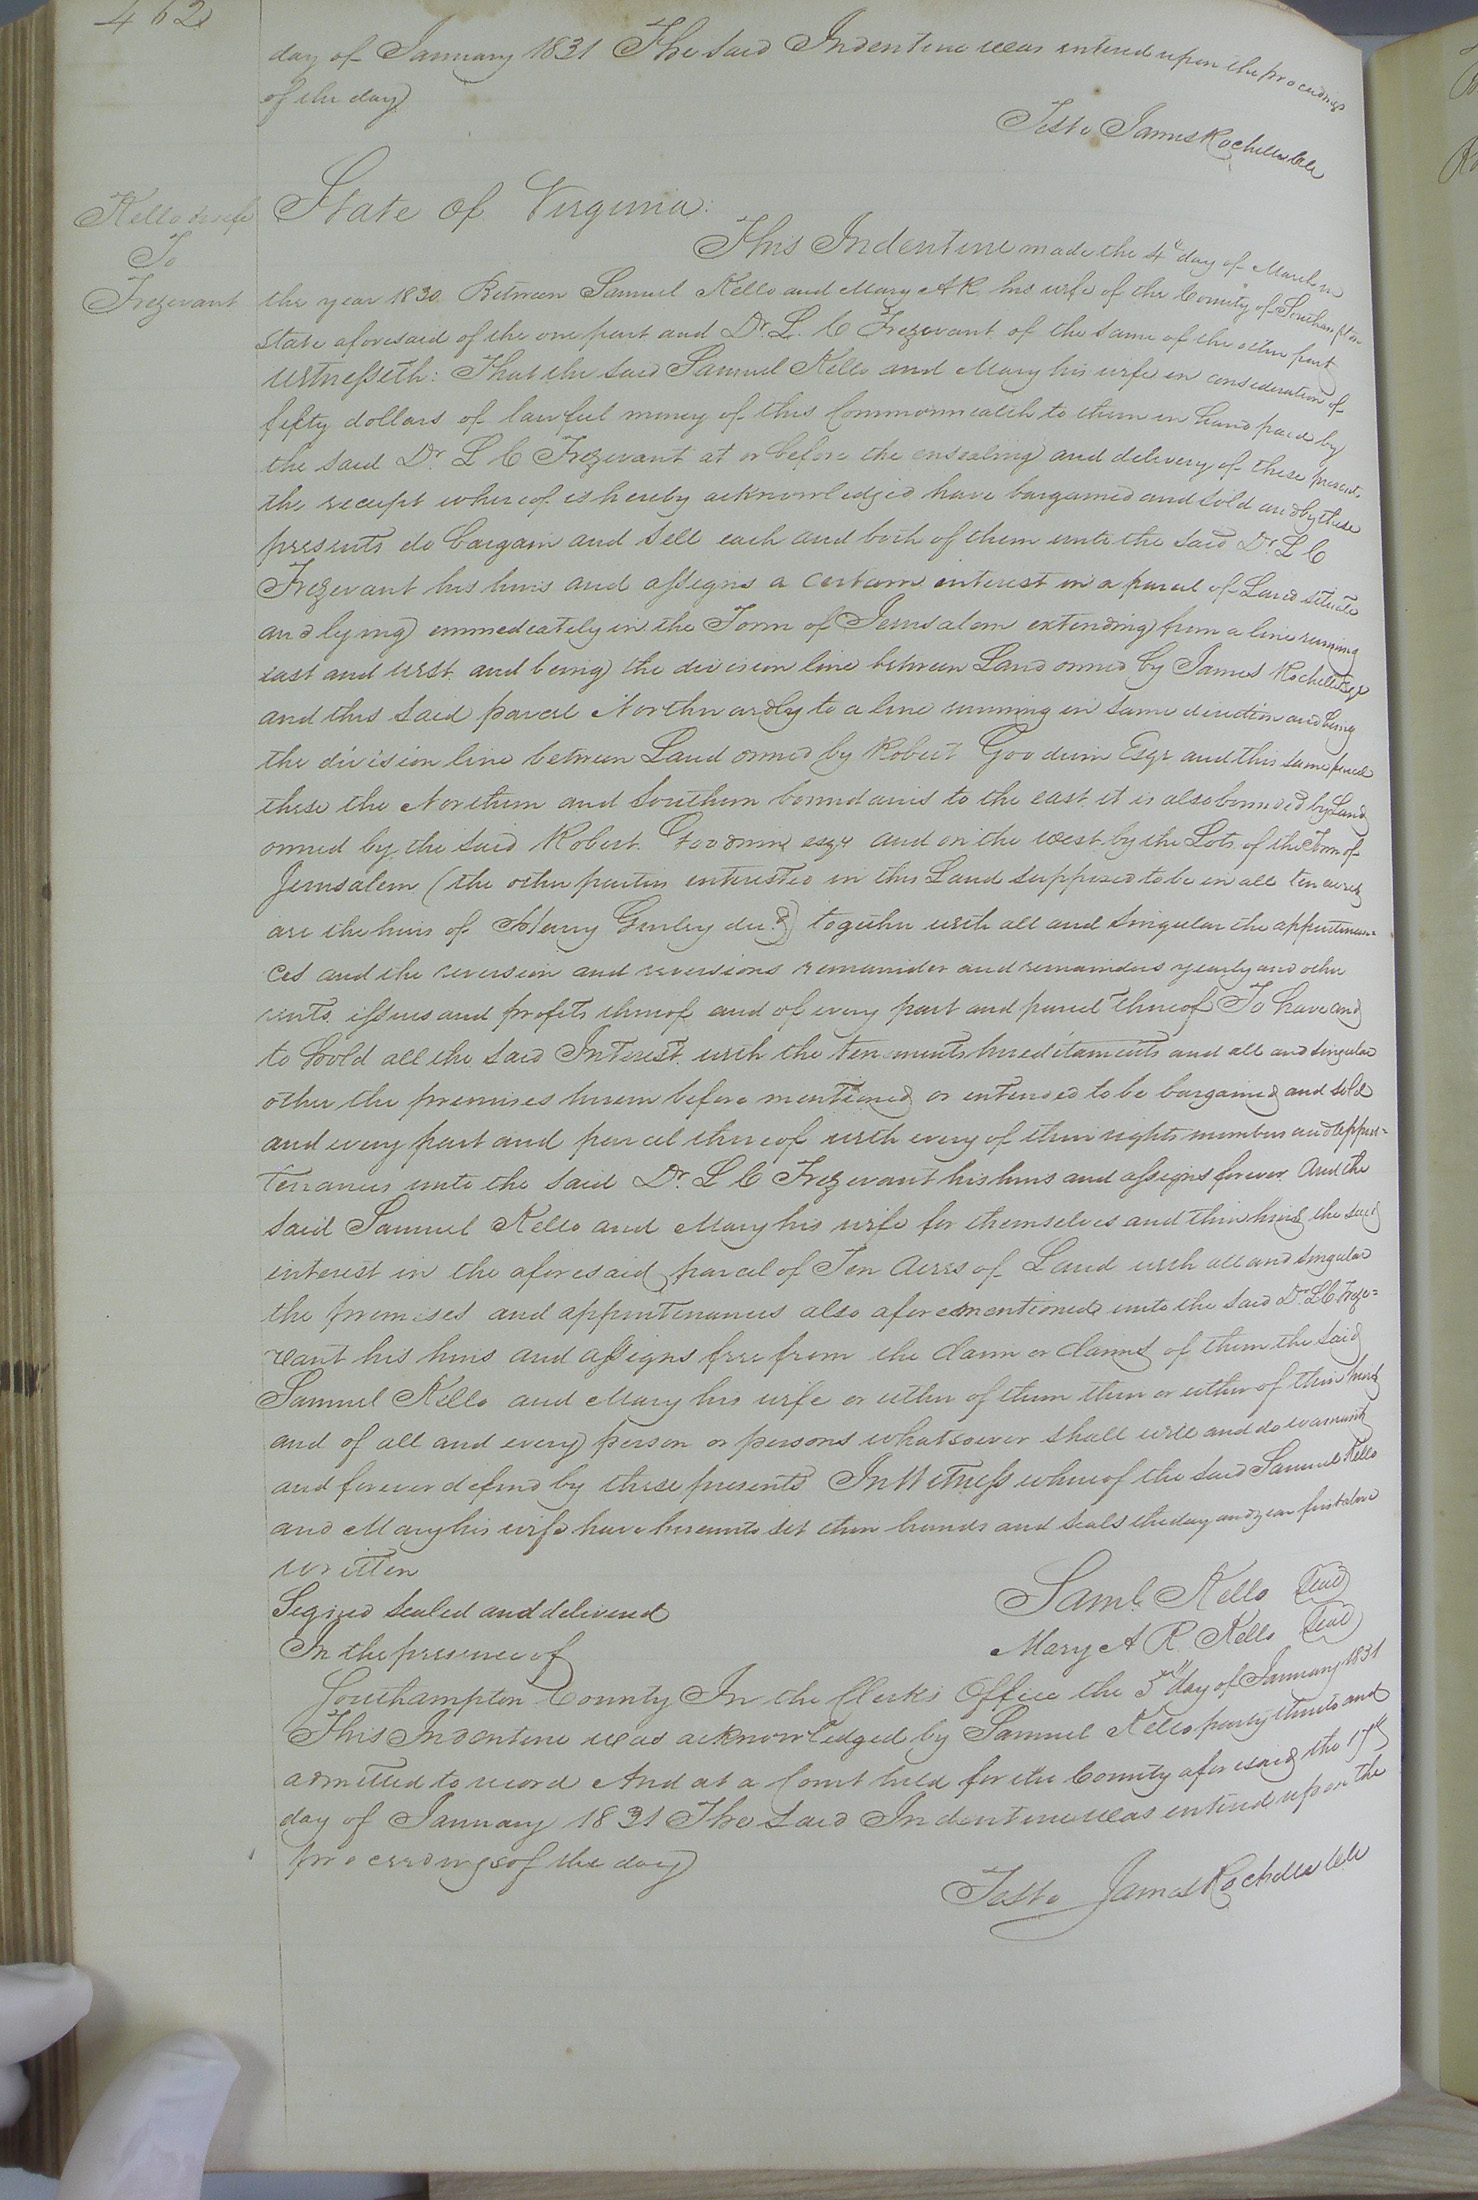 462
day of January 1831 The said Indenture was entered upon the proceedings
of the day
Teste James Rochelle Clk
Kello & wife
To
Trezevant
State of Virginia:
This Indenture made the 4th day of March in
the year 1830. Between Samuel Kello and Mary A R his wife of the County of Southampton
state aforesaid of the one part and Dr. L. C Trezevant of the same of the other part
Witnesseth: That the said Samuel Kello and Mary his wife in consideration of
fifty dollars of lawful money of this Commonwealth to them in hand paid by
the said Dr. L C Trezevant at or before the ensealing and delivery of these presents
the receipt whereof is hereby acknowledged have bargained and sold and by these
presents do bargain and sell each and both of them unto the said Dr L C
Trezevant his heirs and assigns a certain interest in a parcel of Land situate
and lying immediately in the Town of Jerusalem extending from a line running
east and west and being the division line between Land owned by James Rochelle Esqr
and this said parcel Northwardly to a line running in same direction and being
the division line between Land owned by Robert Goodwin Esqr and this same parcel
these the Northern and Southern boundaries to the east it is also bounded by Land
owned by the said Robert Goodwin esqr and on the west by the Lots of the Town of
Jerusalem (the other parties interested in this Land supposed to be in all ten acres
are the heirs of Henry Gurley decd.) together with all and singular the appurtenan-
ces and the reversion and reversions remainder and remainders yearly and other
rents issues and profits thereof and of every part and parcel thereof To have and
to hold all the said Interest with the tenements hereditaments and all and singular
other the premises herein before mentioned or intended to be bargained and sold
and every part and parcel thereof with every of their rights members and appur-
tenances unto the said Dr. L C Trezevant his heirs and assigns forever And the
said Samuel Kello and Mary his wife for themselves and their heirs the said
interest in the aforesaid parcel of Ten Acres of Land with all and singular
the premises and appurtenances also aforementioned unto the said Dr. L C Treze-
vant his heirs and assigns free from the claim or claims of them the said
Samuel Kello and Mary his wife or either of them their or either of their heirs
and of all and every person or persons whatsoever shall will and do warrant
and forever defend by these presents In Witness whereof the said Samuel Kello
and Mary his wife have hereunto set their hands and seals the day and year first above
written
Signed sealed and delivered
In the presence of
Saml. Kello Seal
Mary A R. Kello Seal
Southampton County In the Clerk's Office the 3rd day of January 1831
This Indenture was acknowledged by Samuel Kello party thereto and
admitted to record And at a Court held for the County aforesaid the 17th
day of January 1831 The said Indenture was entered upon the
proceedings of the day
Teste James Rochelle Clk